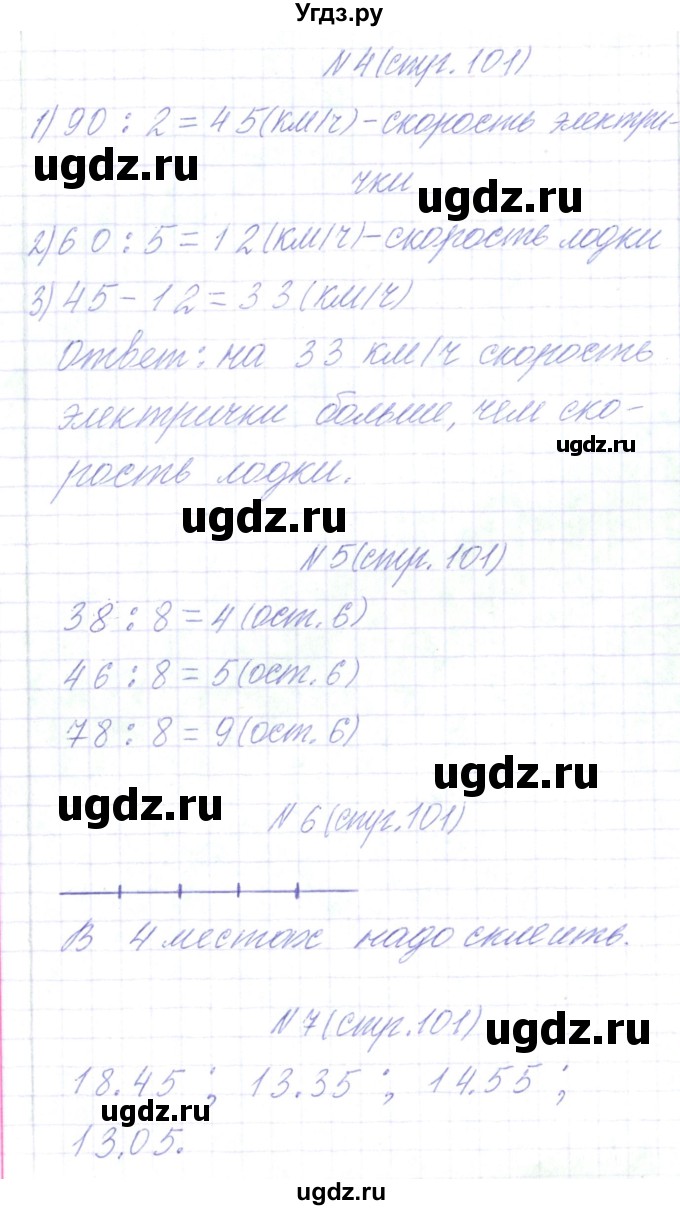 Угдз.ру
N 4 (стр. 101)
1) 90 : 2 = 45 (км/ч) - скорость электри-
ugdz.ru
чки
ugdz.ru
2) 60 : 5 = 12 (км/ч) - скорость лодки
3) 45 - 12 = 33 (км/ч)
Ответ: на 33 км/ч скорость
электрички больше, чем ско-
ugdz.ru
рость лодки.
ugdz.ru
N 5 (стр. 101)
38 : 8 = 4 (ост. 6)
46 : 8 = 5 (ост. 6)
78 : 8 = 9 (ост. 6)
ugdz.ru
ugdz.ru
N 6 (стр. 101)
В 4 местах надо склеить.
N 7 (стр. 101)
ugdz.ru
18.45 ; 13.35 ; 14.55 ;
ugdz.ru
13.05.
ugdz.ru